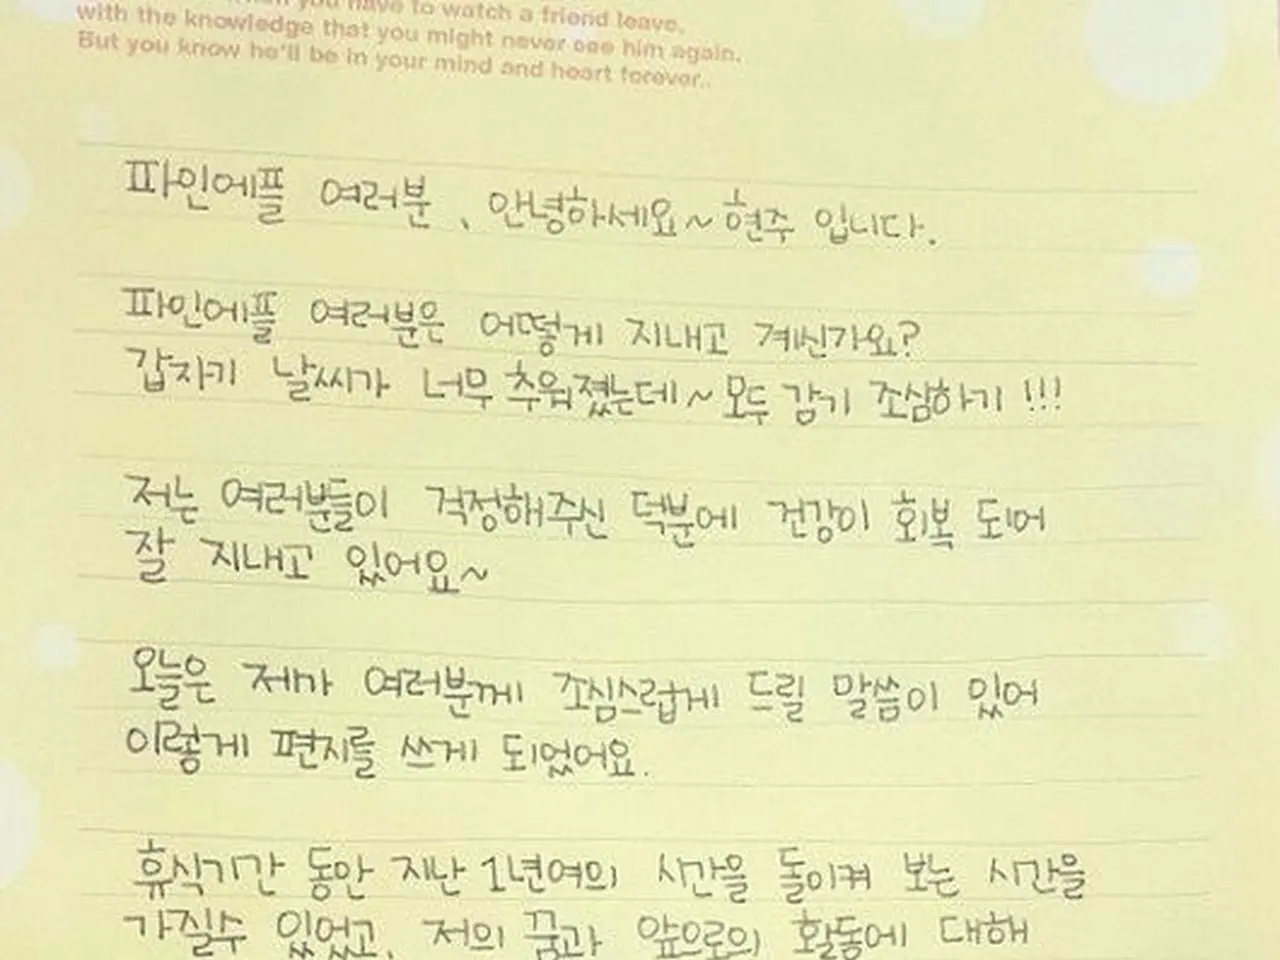 you have to watch a friend leave,
with the knowledge that you might never see him again.
But you know he'll be in your mind and heart forever..
파인에플 여러분, 안녕하세요~ 현주 입니다.
파인에플 여러분은 어떻게 지내고 계신가요?
갑자기 날씨가 너무 추워졌는데~ 모두 감기 조심하기!!!
저는 여러분들이 걱정해주신 덕분에 건강이 회복 되어
잘 지내고 있어요~
오늘은 저가 여러분께 조심스럽게 드릴 말씀이 있어
이렇게 편지를 쓰게 되었어요.
휴식기간 동안 지난 1년여의 시간을 돌이켜 보는 시간을
가질수 있었고, 저의 꿈과 앞으로의 활동에 대해